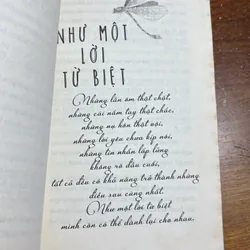 NHƯ MỘT
LỜI
TỪ BIỆT
Những lần ôm thật chặt,
những cái nắm tay thật chắc,
những nụ hôn thật vội,
những lời yêu chưa kịp nói,
những tin nhắn lấp lửng
không rõ đầu cuối,
tất cả đều có khả năng trở thành những
điều sau cùng nhất.
Như một lời từ biệt
mình cần có thể dành lại cho nhau.